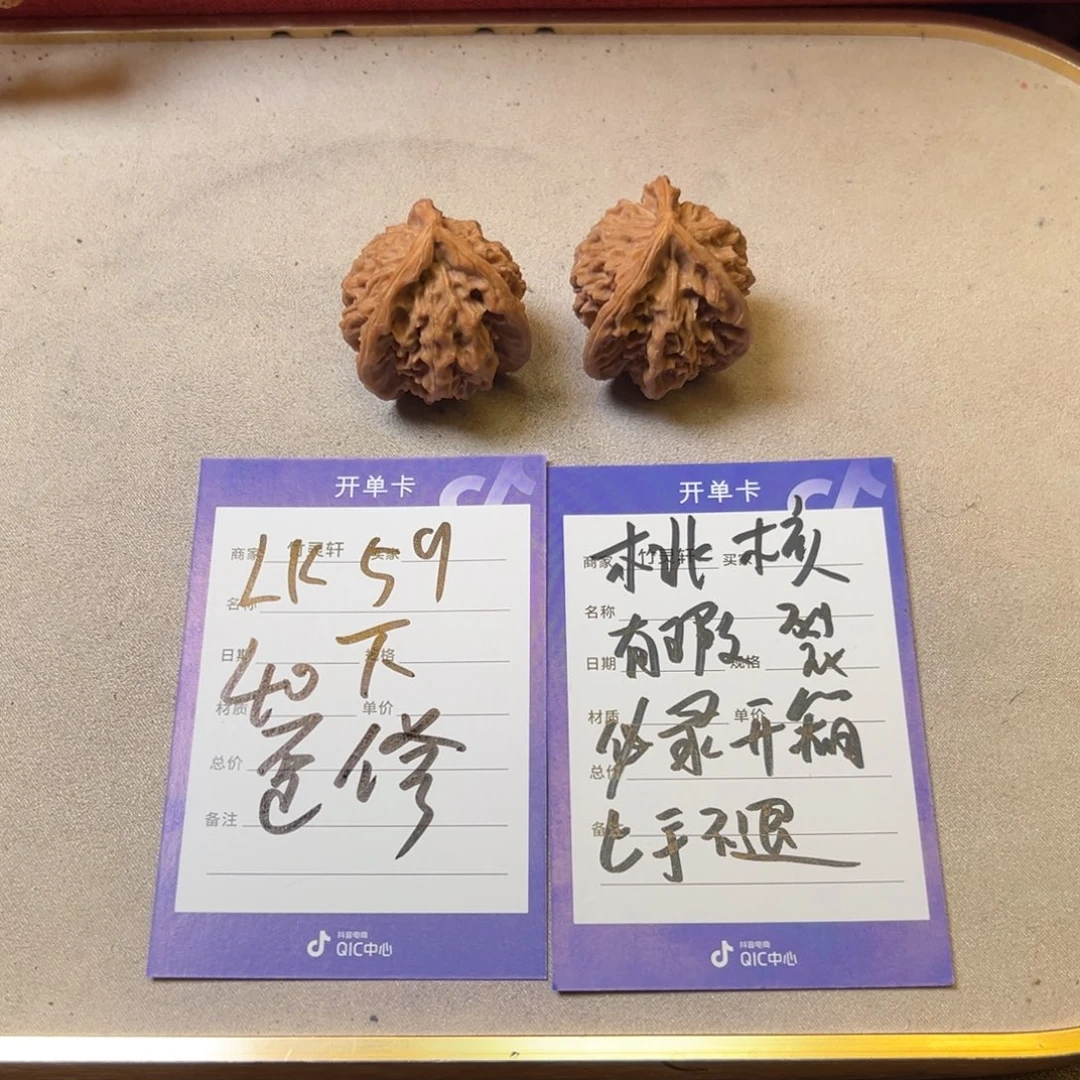 开单卡
商家 竹灵轩 买家
LK 59
名称
日期 规格
40 下
材质 单价
总价
包 修
备注
抖音电商
QIC中心
开单卡
商家 竹灵轩 买家
桃核
名称
日期 规格
有瑕 裂
材质 单价
必录开箱
总价
备注
七手不退
抖音电商
QIC中心